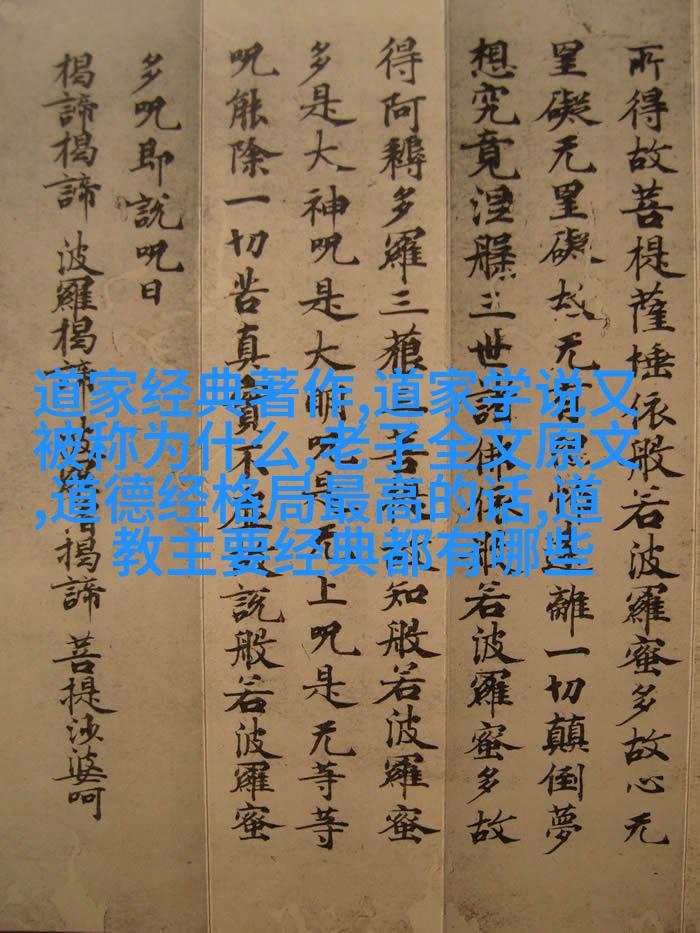 所得故菩提薩埵依般若波羅蜜多故心无
罣礙无罣礙故无有恐怖遠離一切顛倒夢
想究竟涅槃三世諸佛依般若波羅蜜多故
得阿耨多羅三藐三菩提故知般若波羅蜜
多是大神呪是大明呪是无上呪是无等等
呪能除一切苦真實不虛故說般若波羅蜜
多呪即說呪曰
揭諦揭諦 波羅揭諦 波羅僧揭諦 菩提沙婆呵
道家经典著作,道家学说又
被称为什么,老子全文原文
,道德经格局最高的话,道
教主要经典都有哪些